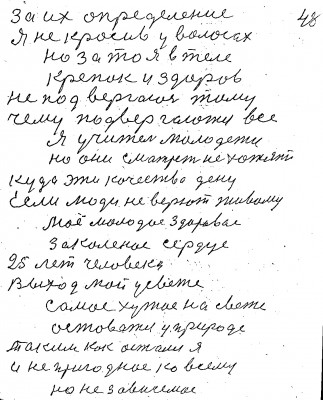 За их определение
48
Я не красив у волосах
но за то я в теле
крепок и здоров
не подвергался тому
чему подвергалоти все
Я учител молодежи
но они смотрет не хотят
куда эти качества дену
если люди не верют живому
моё молодое здоровае
закаленое сердце
25 лет человека
Выход мой у свете
самое хужае на свете
остоватси у природе
таким как остался я
и не пригодное ко всему
но не зависемое